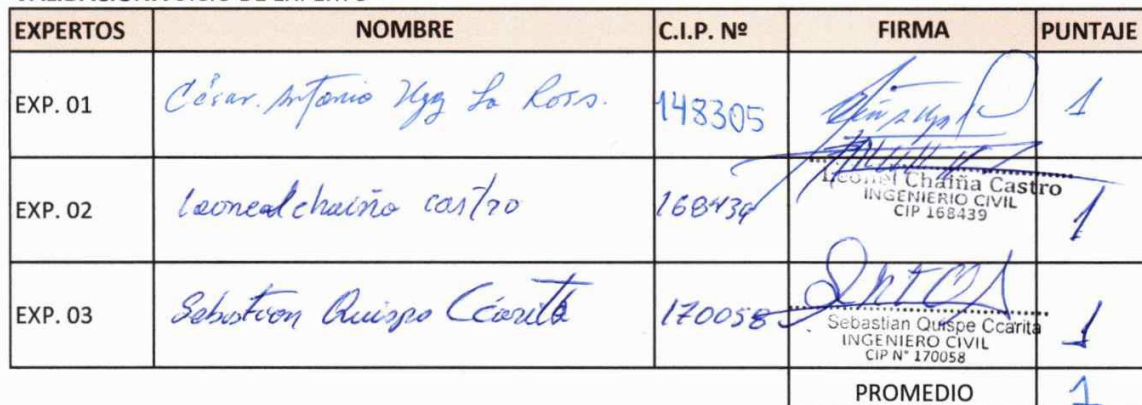 VALIDACION JUICIO DE EXPERTO
EXPERTOS NOMBRE C.I.P. Nº FIRMA PUNTAJE
EXP. 01 César. Antonio Ugg La Rosa. 148305 1
EXP. 02 Leoneal chaiña castro 168439 Leonel Chaiña Castro 1
INGENIERIO CIVIL
CIP 168439
EXP. 03 Sebastian Quispe Ccarita 170058 Sebastian Quispe Ccarita 1
INGENIERO CIVIL
CIP N° 170058
PROMEDIO 1